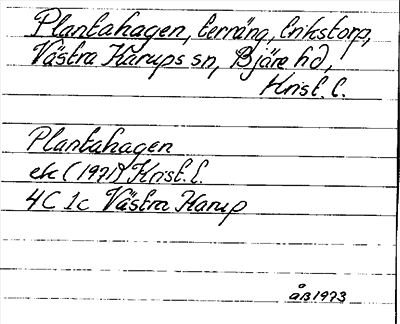 Plantahagen, terräng, Erikstorp,
Västra Karups sn, Bjäre hd,
Krist. l.
Plantahagen
ek (1971) Krist. l.
4C 1c Västra Karup
åB 1973